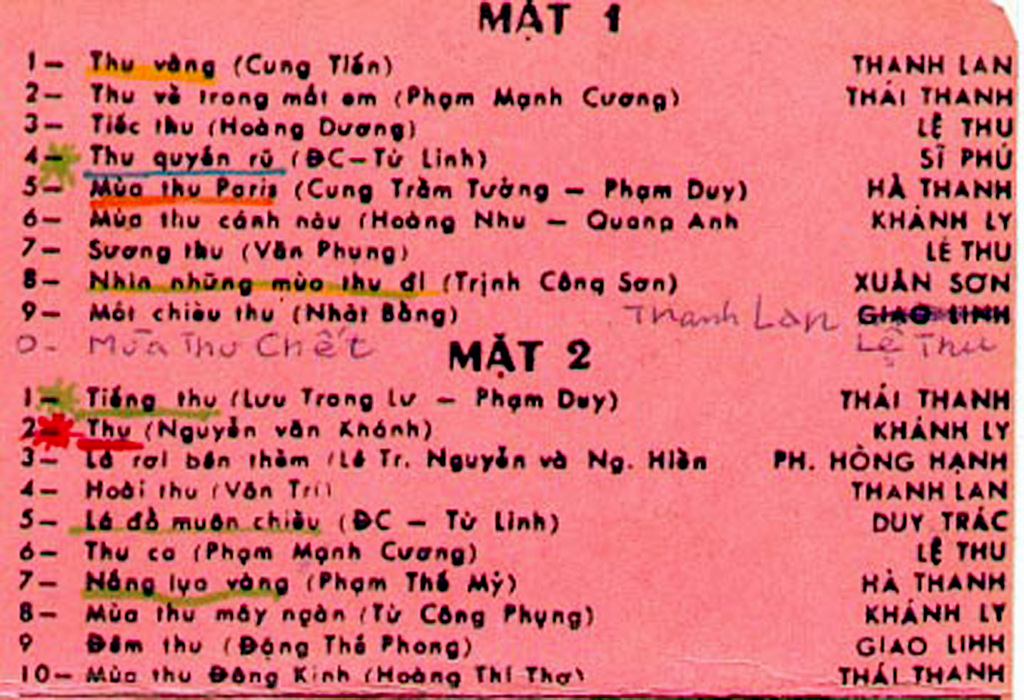 MẶT 1
1– Thu vàng (Cung Tiến) THANH LAN
2– Thu về trong mắt em (Phạm Mạnh Cương) THÁI THANH
3– Tiếc thu (Hoàng Dương) LỆ THU
4– Thu quyến rũ (ĐC–Từ Linh) SĨ PHÚ
5– Mùa thu Paris (Cung Trầm Tưởng – Phạm Duy) HÀ THANH
6– Mùa thu cánh nâu (Hoàng Nhu – Quang Anh KHÁNH LY
7– Sương thu (Văn Phụng) LỆ THU
8– Nhìn những mùa thu đi (Trịnh Công Sơn) XUÂN SƠN
9– Một chiều thu (Nhật Bằng) Thanh Lan GIAO LINH
0- Mùa Thu Chết Lệ Thu
MẶT 2
1– Tiếng thu (Lưu Trọng Lư – Phạm Duy) THÁI THANH
2– Thu (Nguyễn văn Khánh) KHÁNH LY
3– Lá rơi bên thềm (Lê Tr. Nguyễn và Ng. Hiền PH. HỒNG HẠNH
4– Hoài thu (Văn Trí) THANH LAN
5– Lá đổ muôn chiều (ĐC – Từ Linh) DUY TRÁC
6– Thu ca (Phạm Mạnh Cương) LỆ THU
7– Nắng lụa vàng (Phạm Thế Mỹ) HÀ THANH
8– Mùa thu mây ngàn (Từ Công Phụng) KHÁNH LY
9 Đêm thu (Đặng Thế Phong) GIAO LINH
10– Mùa thu Đông Kinh (Hoàng Thi Thơ) THÁI THANH